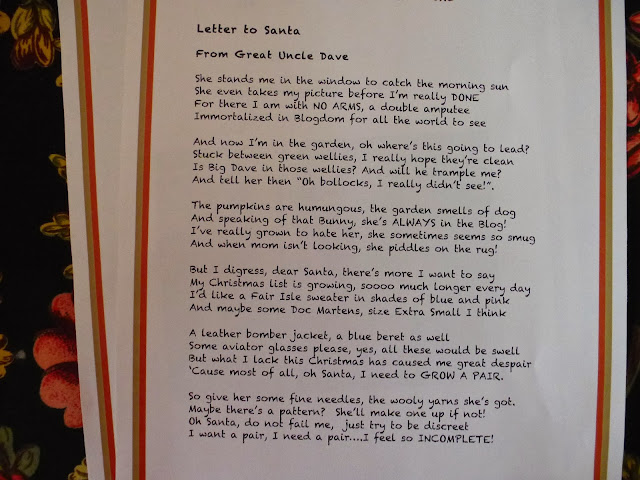 Letter to Santa
From Great Uncle Dave
She stands me in the window to catch the morning sun
She even takes my picture before I'm really DONE
For there I am with NO ARMS, a double amputee
Immortalized in Blogdom for all the world to see
And now I'm in the garden, oh where's this going to lead?
Stuck between green wellies, I really hope they're clean
Is Big Dave in those wellies? And will he trample me?
And tell her then "Oh bollocks, I really didn't see!".
The pumpkins are humungous, the garden smells of dog
And speaking of that Bunny, she's ALWAYS in the Blog!
I've really grown to hate her, she sometimes seems so smug
And when mom isn't looking, she piddles on the rug!
But I digress, dear Santa, there's more I want to say
My Christmas list is growing, soooo much longer every day
I'd like a Fair Isle sweater in shades of blue and pink
And maybe some Doc Martens, size Extra Small I think
A leather bomber jacket, a blue beret as well
Some aviator glasses please, yes, all these would be swell
But what I lack this Christmas has caused me great despair
'Cause most of all, oh Santa, I need to GROW A PAIR.
So give her some fine needles, the wooly yarns she's got.
Maybe there's a pattern? She'll make one up if not!
Oh Santa, do not fail me, just try to be discreet
I want a pair, I need a pair....I feel so INCOMPLETE!